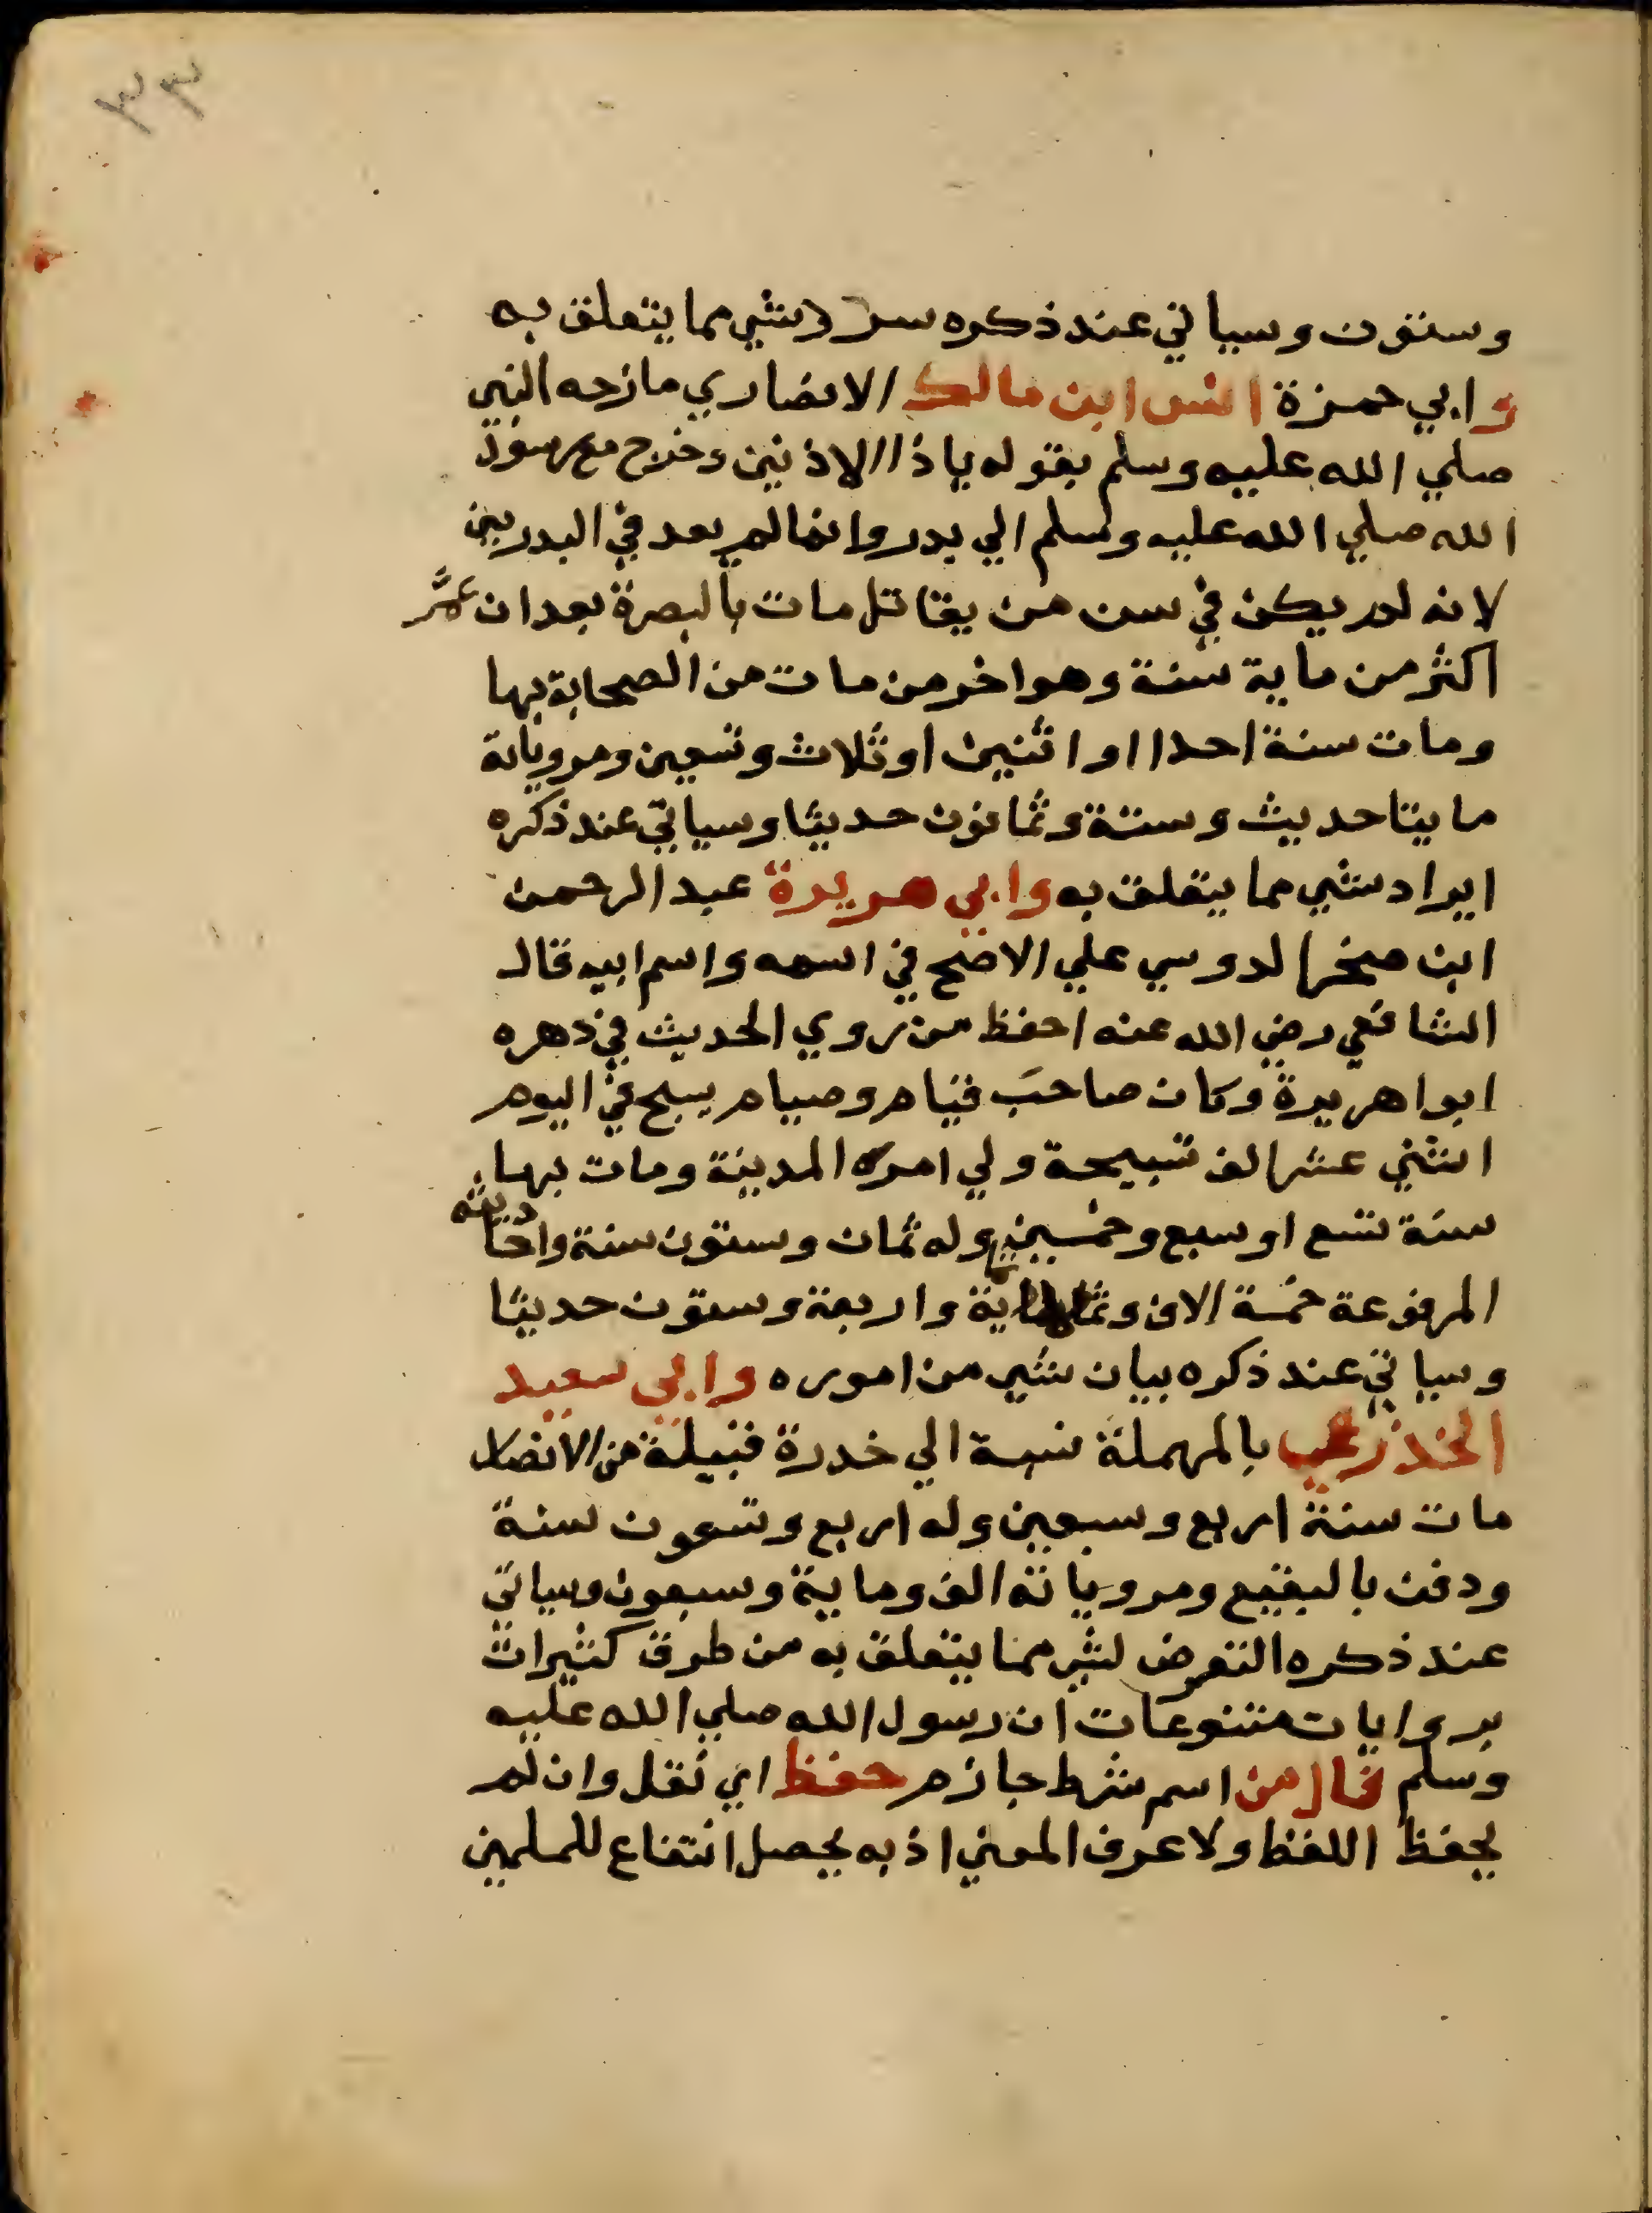 ٣٣
وستون وسياتي عند ذكره سرد شي مما يتعلق به
وابي حمزة انس ابن مالك الانصاري مازحه النبي
صلي الله عليه وسلم بقوله ياذا الاذنين وخرج مع رسول
الله صلي الله عليه وسلم الي بدر وانما لم يعد في البدريين
لانه لم يكن في سن من يقاتل مات بالبصرة بعد ان عمّر
اكثر من ماية سنة وهو اخر من مات من الصحابة بها
ومات سنة احدا او اثنين او ثلاث وتسعين ومروياته
مايتا حديث وستة وثمانون حديثا وسياتي عند ذكره
ايراد شي مما يتعلق به وابي هريرة عبد الرحمن
ابن صخر الدوسي علي الاصح في اسمه واسم ابيه قال
الشافعي رضي الله عنه احفظ من روي الحديث في دهره
ابوا هريرة وكان صاحب قيام وصيام يسبح في اليوم
اثني عشر الف تسبيحة ولي امرة المدينة ومات بها
سنة تسع او سبع وخمسين وله ثمان وستون سنة واحاديثه
المرفوعة خمسة الاف وثلثماية واربعة وستون حديثا
وسياتي عند ذكره بيان شي من اموره وابي سعيد
الخدري بالمهملة نسبة الي خدرة قبيلة من الانصار
مات سنة اربع وسبعين وله اربع وتسعون سنة
ودفن بالبقيع ومروياته الف وماية وسبعون وسياتي
عند ذكره التعرض لشي مما يتعلق به من طرق كثيرات
بروايات متنوعات ان رسول الله صلي الله عليه
وسلم قال من اسم شرط جازم حفظ اي نقل وان لم
يحفظ اللفظ ولا عرف المعني اذ به يحصل انتفاع للمسلمين